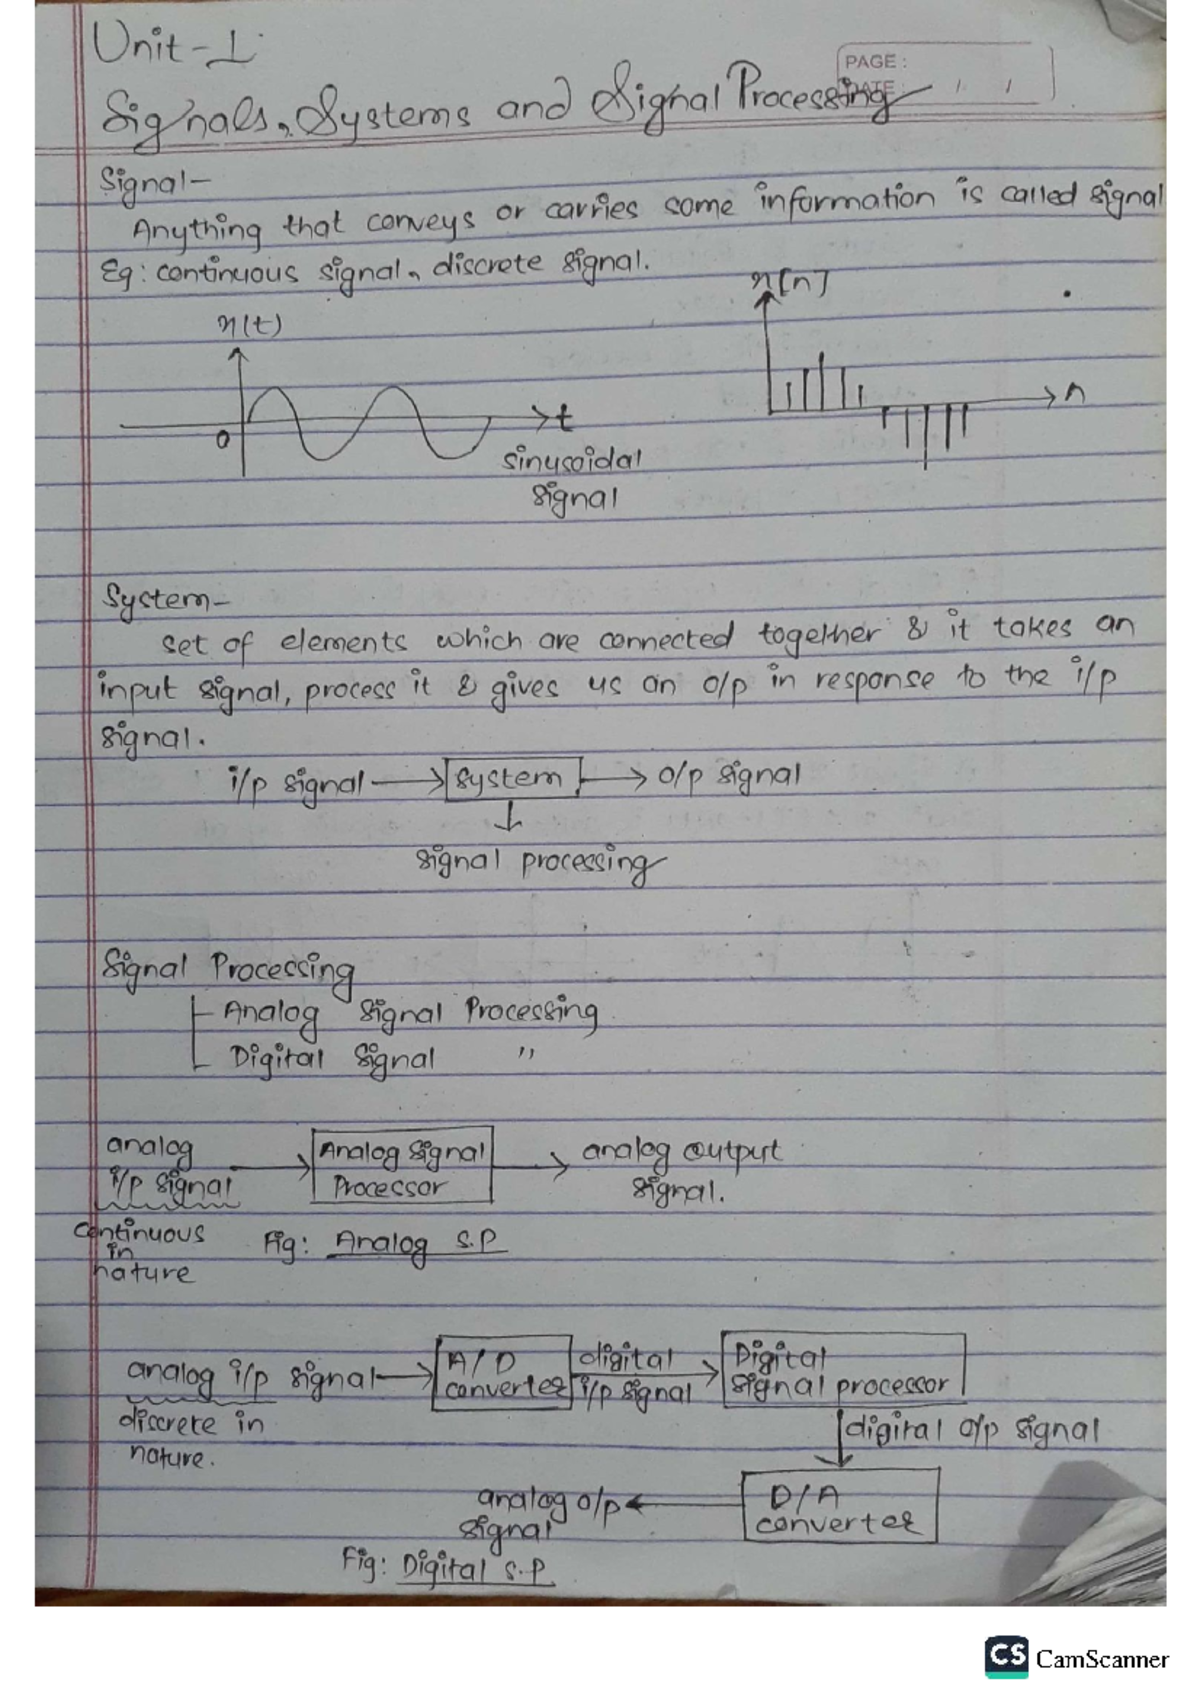 Unit-1.
PAGE :
DATE : / /
Signals, Systems and Signal Processing
Signal-
Anything that conveys or carries some information is called signal
Eg: continuous signal, discrete signal.
x[n]
x(t)
n
0
t
sinusoidal
signal
System-
set of elements which are connected together & it takes an
input signal, process it & gives us an o/p in response to the i/p
signal.
i/p signal → system → o/p signal
↓
signal processing
Signal Processing
Analog Signal Processing
Digital Signal "
analog
i/p signal
Analog Signal
Processor
analog output
signal.
continuous
in
nature
Fig: Analog S.P
analog i/p signal
discrete in
nature.
A/D
converter
digital
i/p signal
Digital
signal processor
digital o/p signal
D/A
converter
analog o/p
signal
Fig: Digital S.P
CS CamScanner